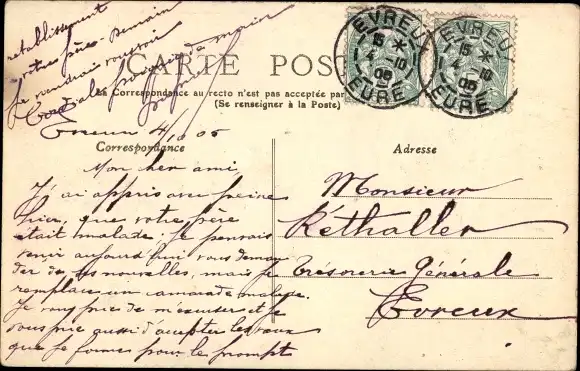 CARTE POST
La Correspondance au recto n'est pas acceptée par
(Se renseigner à la Poste)
EVREUX
15 *
4 -10
05
EURE
EVREUX
15 *
4 -10
05
EURE
Evreux 4/10 05
Correspondance
Mon cher ami,
J'ai appris avec peine
hier, que votre père
était malade. Je pensais
venir aujourd'hui vous deman
der de ses nouvelles, mais je
remplace un camarade malade.
Je vous prie de m'excuser et je
vous prie aussi d'accepter les vœux
que je formes pour le prompt
rétablissement
votre père. Demain
je voudrais vous voir
Cordiale poignée de main
Adresse
Monsieur
Kéthaller
Trésorerie Générale
Evreux